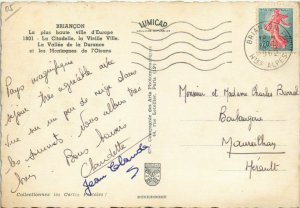 05
BRIANÇON
La plus haute ville d'Europe
1801 - La Citadelle, la Vieille Ville.
La Vallée de la Durance
et les Montagnes de l'Oisans
LUMICAP
Pays magnifique
séjour très agréable avec
vue sur un peu de neige dans
les sommets. Nous allons très
bien. Bons baisers
Claudette
Jean Claude
Monsieur et Madame Charles
Boulangerie
Maureilhan
Hérault
BRIANÇON
Htes ALPES
Collectionnez les Cartes Postales !